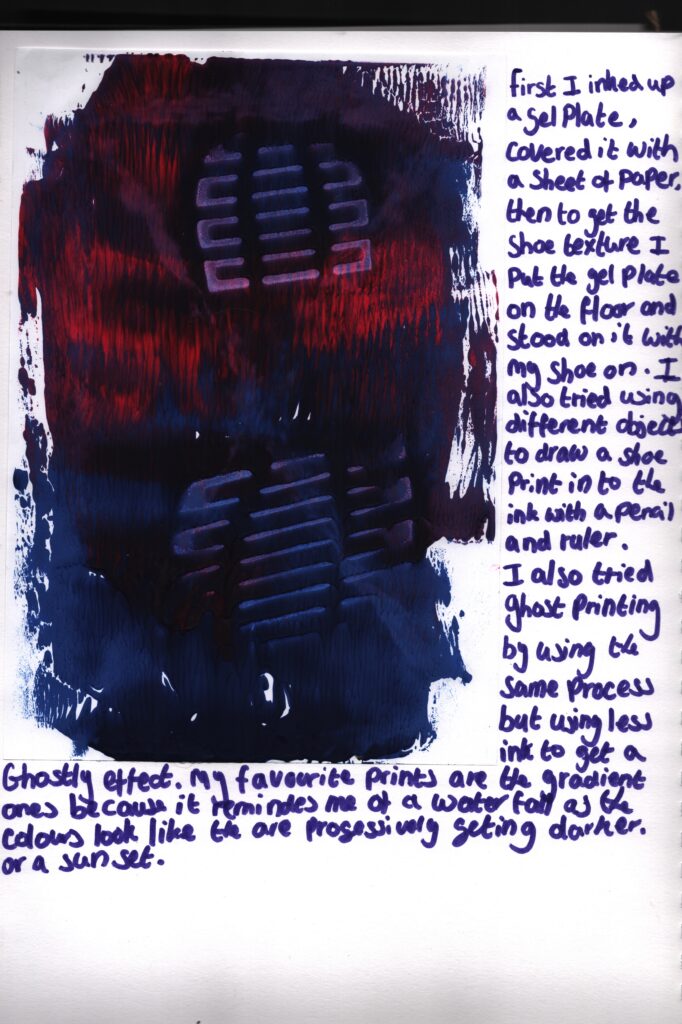 first I inked up
a gel Plate,
covered it with
a sheet of Paper,
then to get the
shoe texture I
Put the gel Plate
on the floor and
stood on it with
my shoe on. I
also tried using
different objects
to draw a shoe
Print in to the
ink with a pencil
and ruler.
I also tried
ghost Printing
by using the
same Process
but using less
ink to get a
Ghostly effect. My favourite Prints are the gradient
ones because it remindes me of a water fall as the
colours look like the are progessively geting darker.
or a sun set.